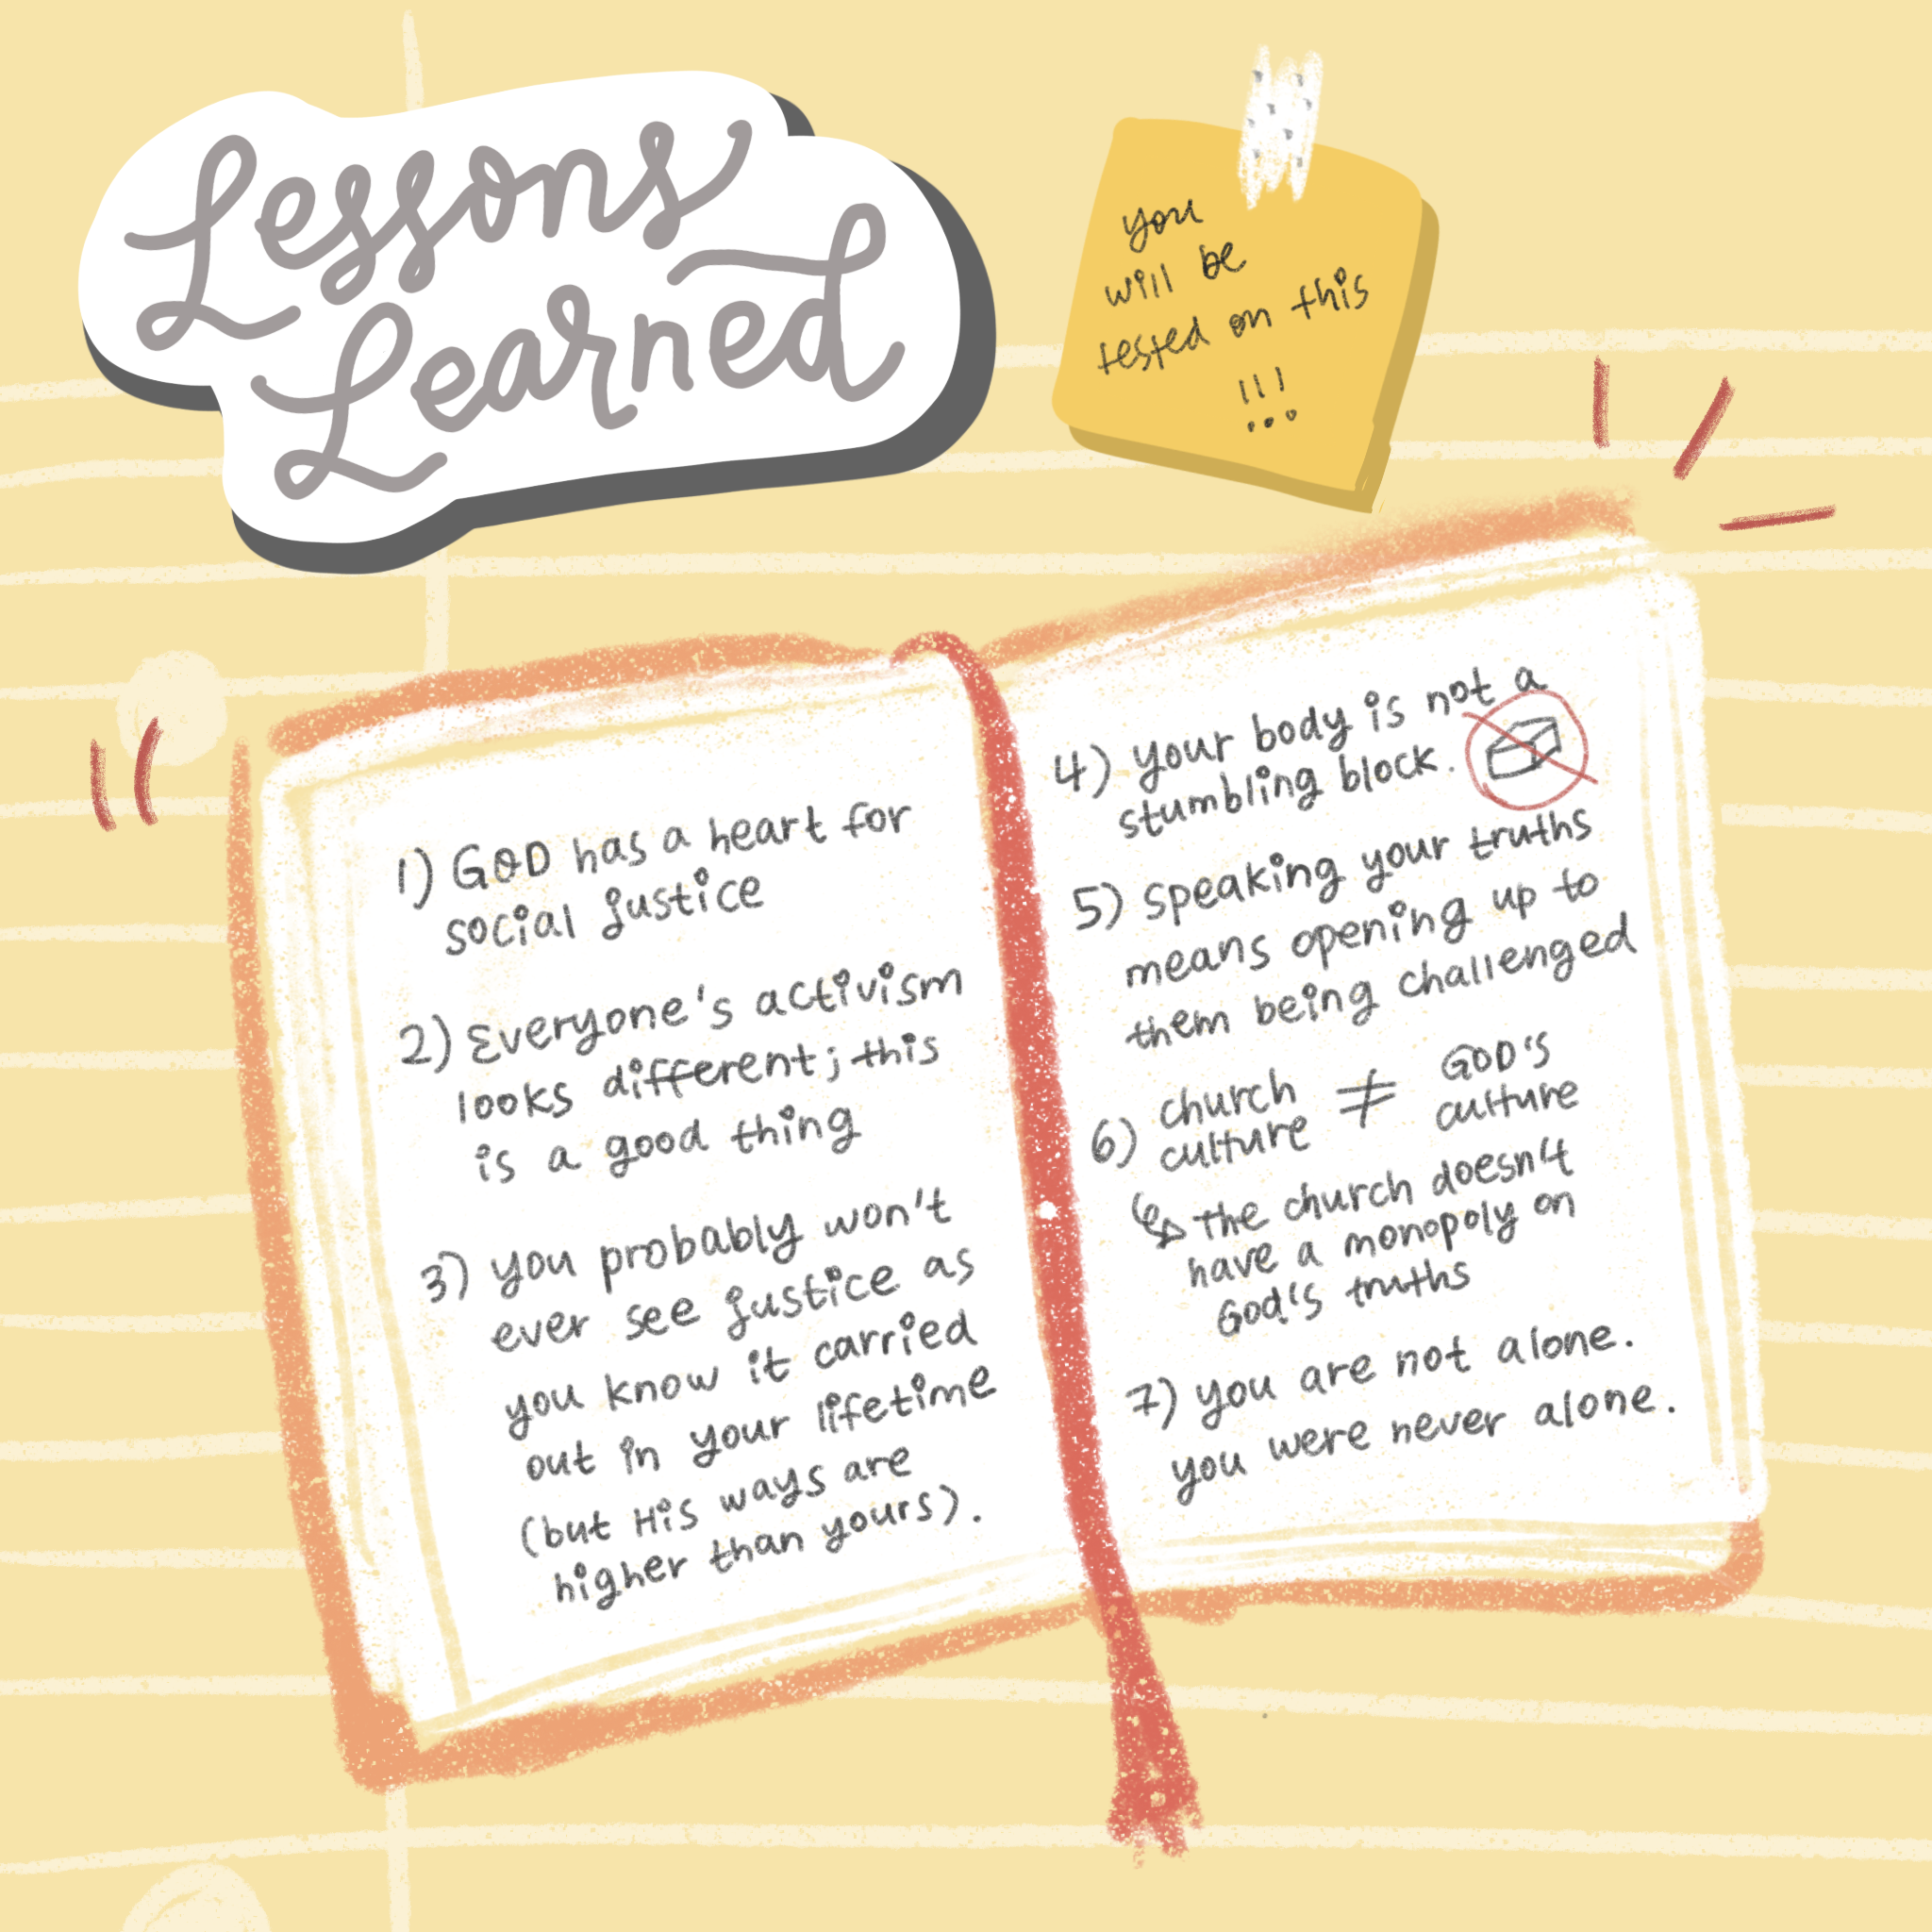 Lessons
Learned
you
will be
tested on this
!!!
1) GOD has a heart for
social justice
2) Everyone's activism
looks different; this
is a good thing
3) you probably won't
ever see justice as
you know it carried
out in your lifetime
(but His ways are
higher than yours).
4) your body is not a
stumbling block.
5) speaking your truths
means opening up to
them being challenged
6) church culture ≠ GOD's culture
↳ the church doesn't
have a monopoly on
God's truths
7) you are not alone.
you were never alone.